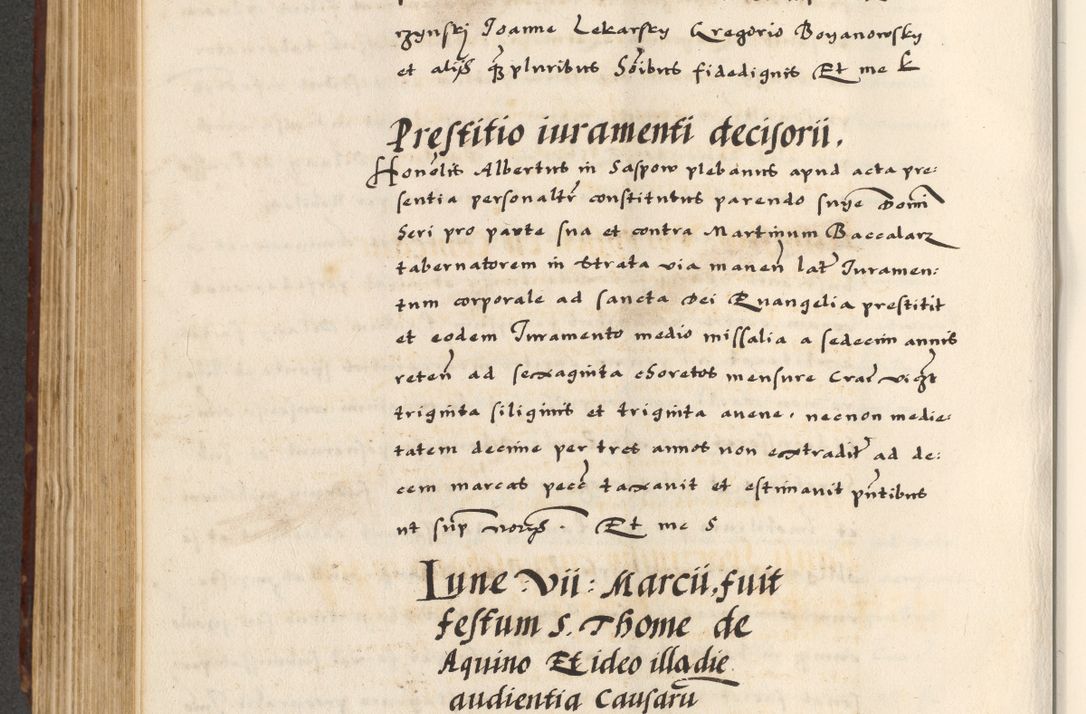 rzynskj Joanne Lekarsky Gregorio Boyanowsky
et alijs qz pluribus Soibus fidedignis Et me L
Prestitio iuramenti decisorii.
Honolis Albertus in Saspow plebanus apud acta pre:
sentia personaltr constitutus parendo suye Domi
Seri pro parte sua et contra Martinum Baccalarz
tabernatorem in Strata via manen lat Juramen:
tum corporale ad sancta Dei Evangelia prestitit
et eodem Juramento medio missalia a sedecim annis
reten ad sexaginta choretos mensure Crac vicz
triginta siliginis et triginta avene, necnon medie:
tatem decime per tres annos non extradit ad de:
cem marcas pecc taxavit et estimavit pntibus
ut sup Et me S
Lune vii: Marcii, fuit
festum S. Thome de
Aquino Et ideo illa die
audientia Causaru